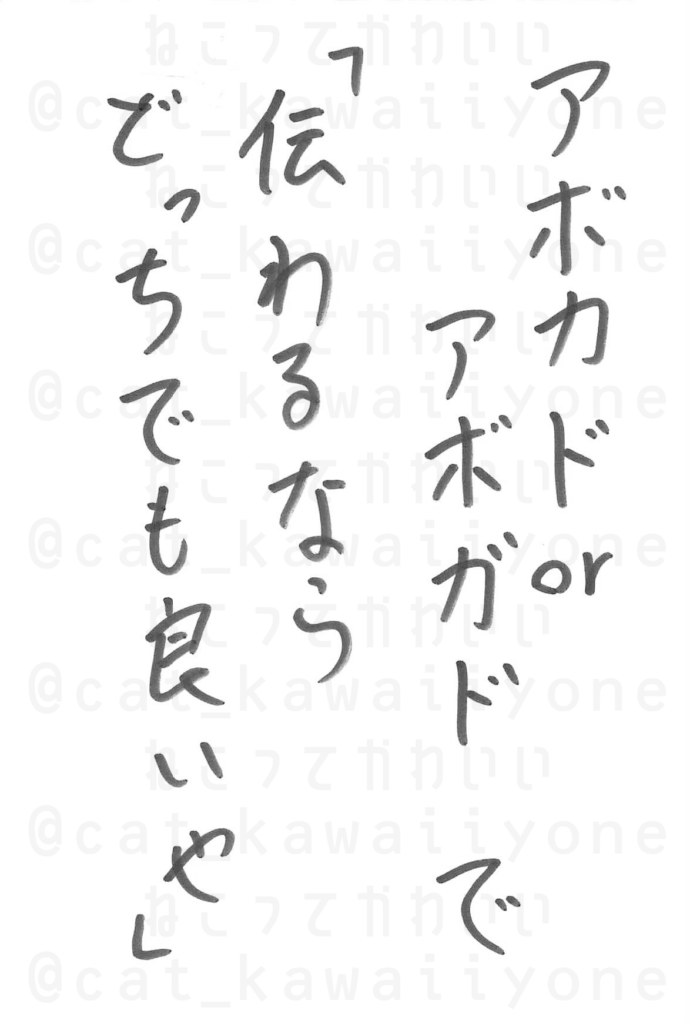 アボカドor
アボガド で
「伝わるなら
どっちでも良いや」
ねこってかわいい
@cat_kawaiiyone
ねこってかわいい
@cat_kawaiiyone
ねこってかわいい
@cat_kawaiiyone
ねこってかわいい
@cat_kawaiiyone
ねこってかわいい
@cat_kawaiiyone
ねこってかわいい
@cat_kawaiiyone
ねこってかわいい
@cat_kawaiiyone